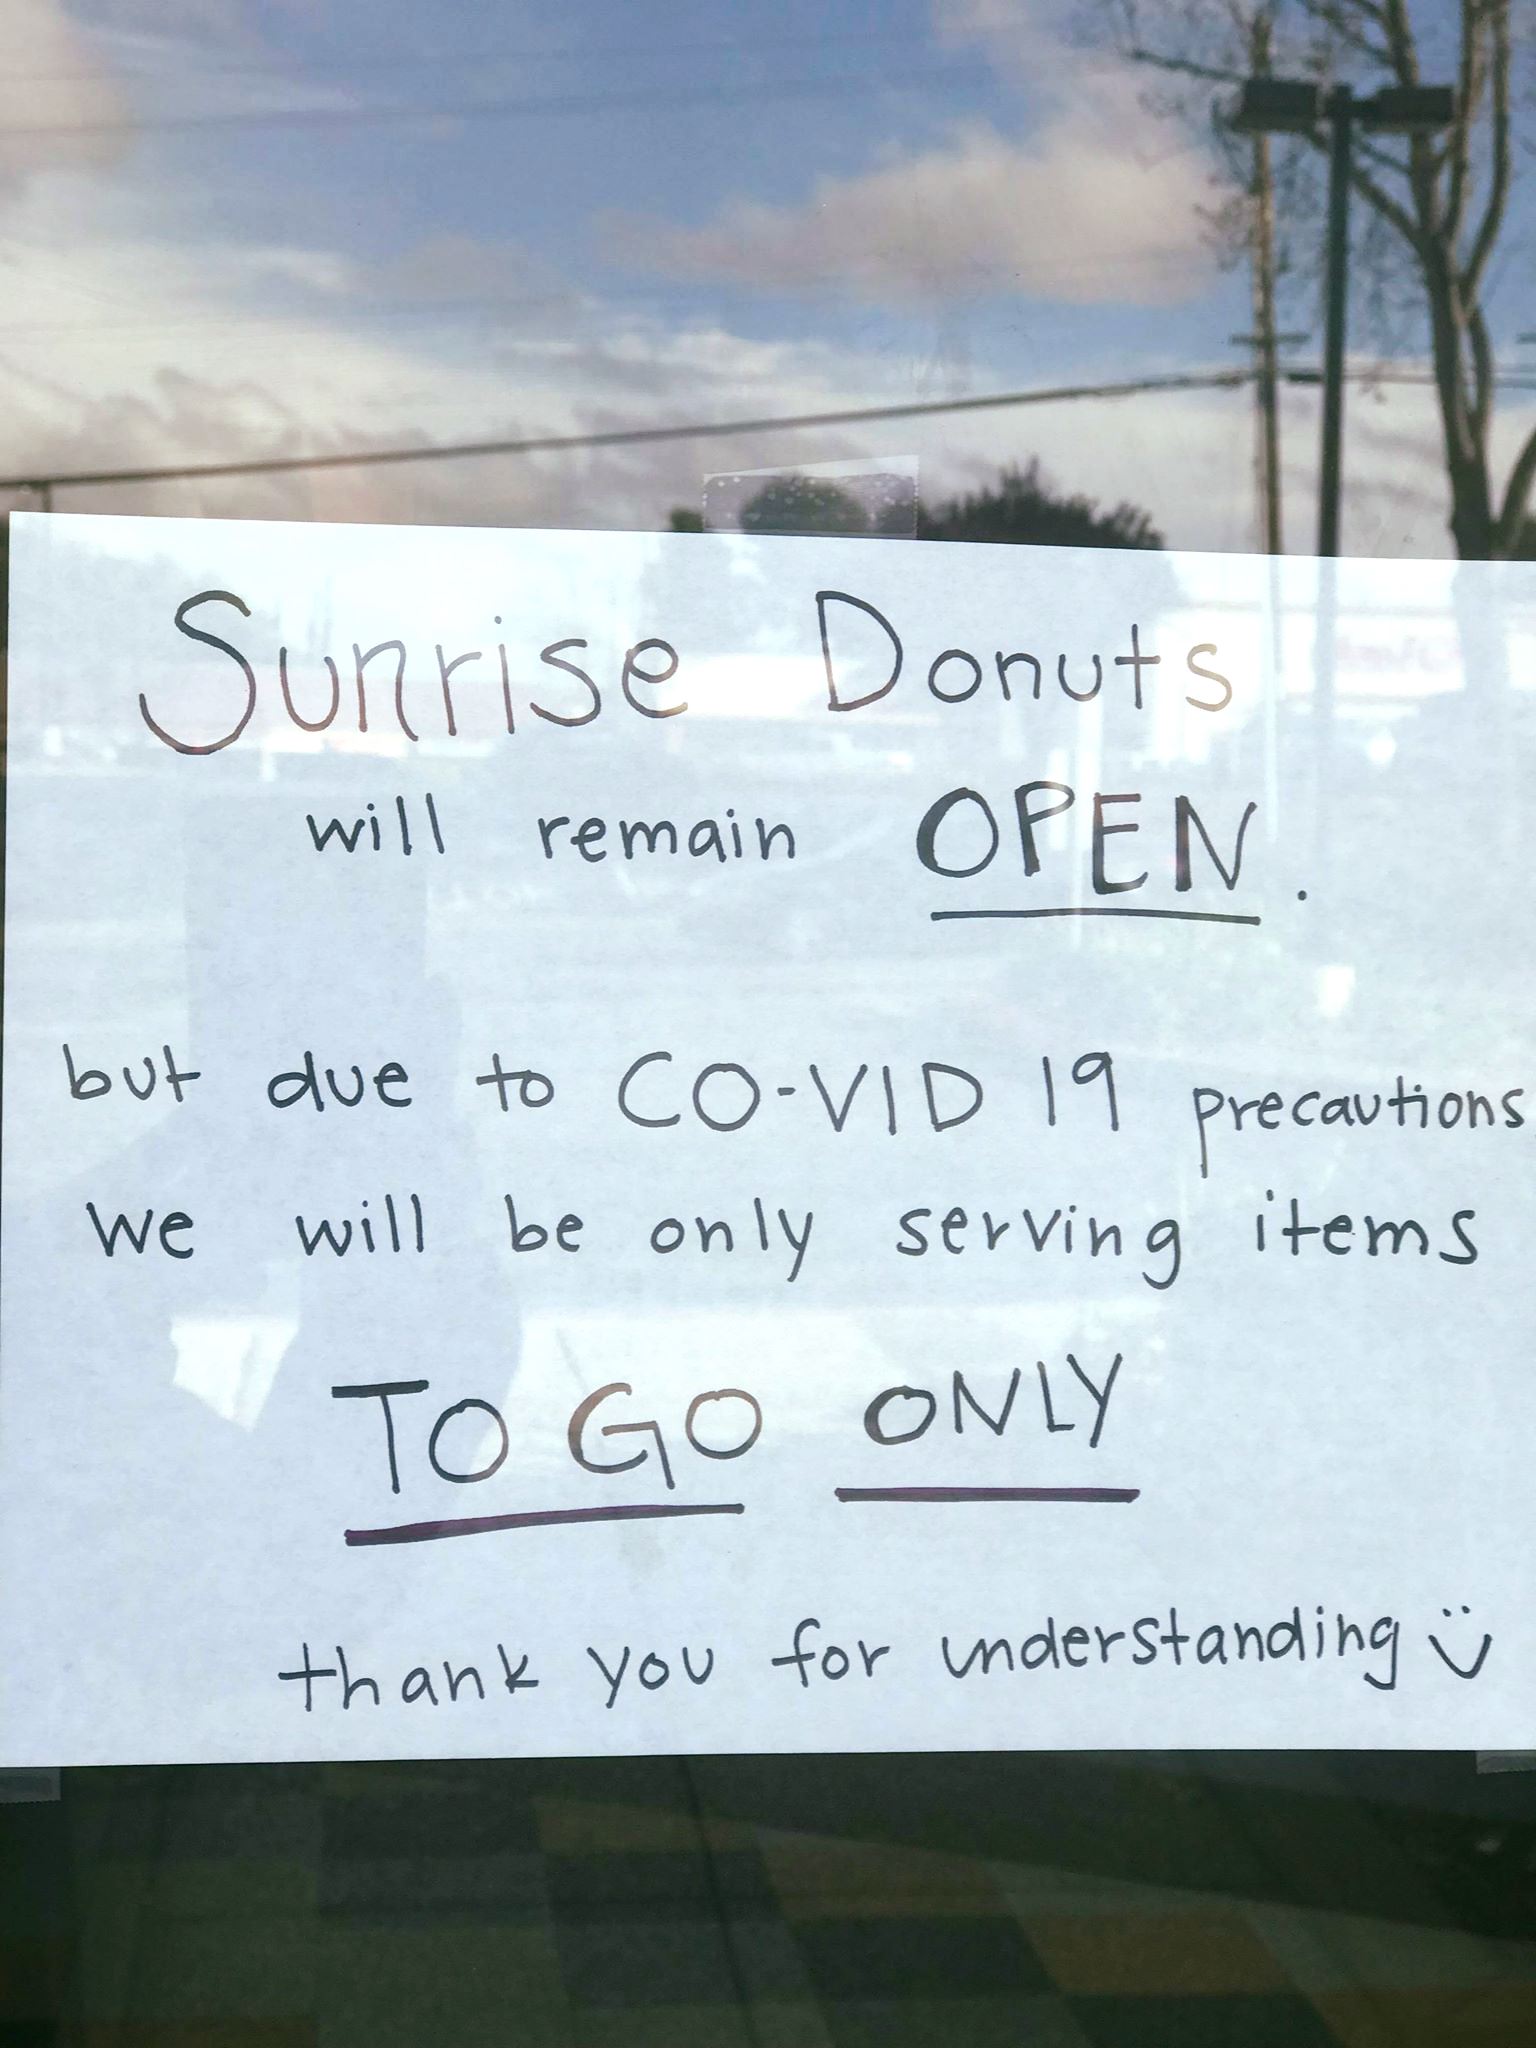 Sunrise Donuts
will remain OPEN.
but due to CO-VID 19 precautions
we will be only serving items
TO GO ONLY
thank you for understanding Ü